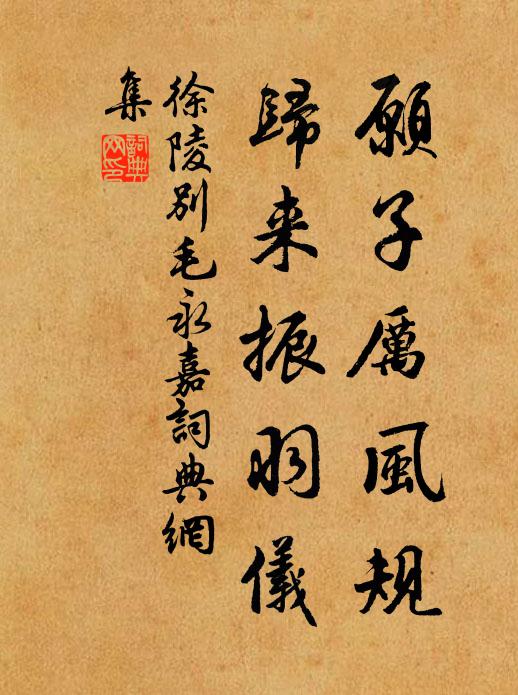 願子厲風規
歸来振羽儀
徐陵別毛永嘉詞典網
集
詞典
网印